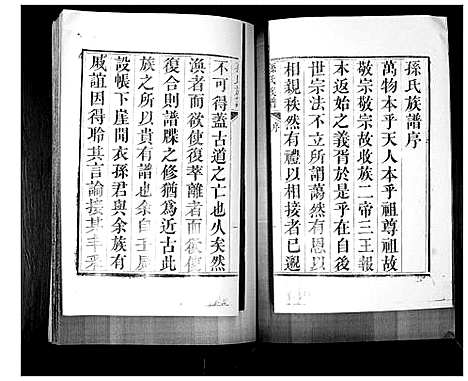 孫氏族譜序
萬物本乎天人本乎祖尊祖故
敬宗敬宗故收族二帝三王報
本返始之義胥於是乎在自後
世宗法不立所謂藹然有恩以
相親秩然有禮以相接者已邈
不可得蓋古道之亡也久矣然
渙者而欲使復萃離者而欲使
復合則譜牒之修猶為近古此
族之所以貴有譜也余自壬
設帳下崖間衣孫君與余族有
戚誼因得聆其言論接其丰采